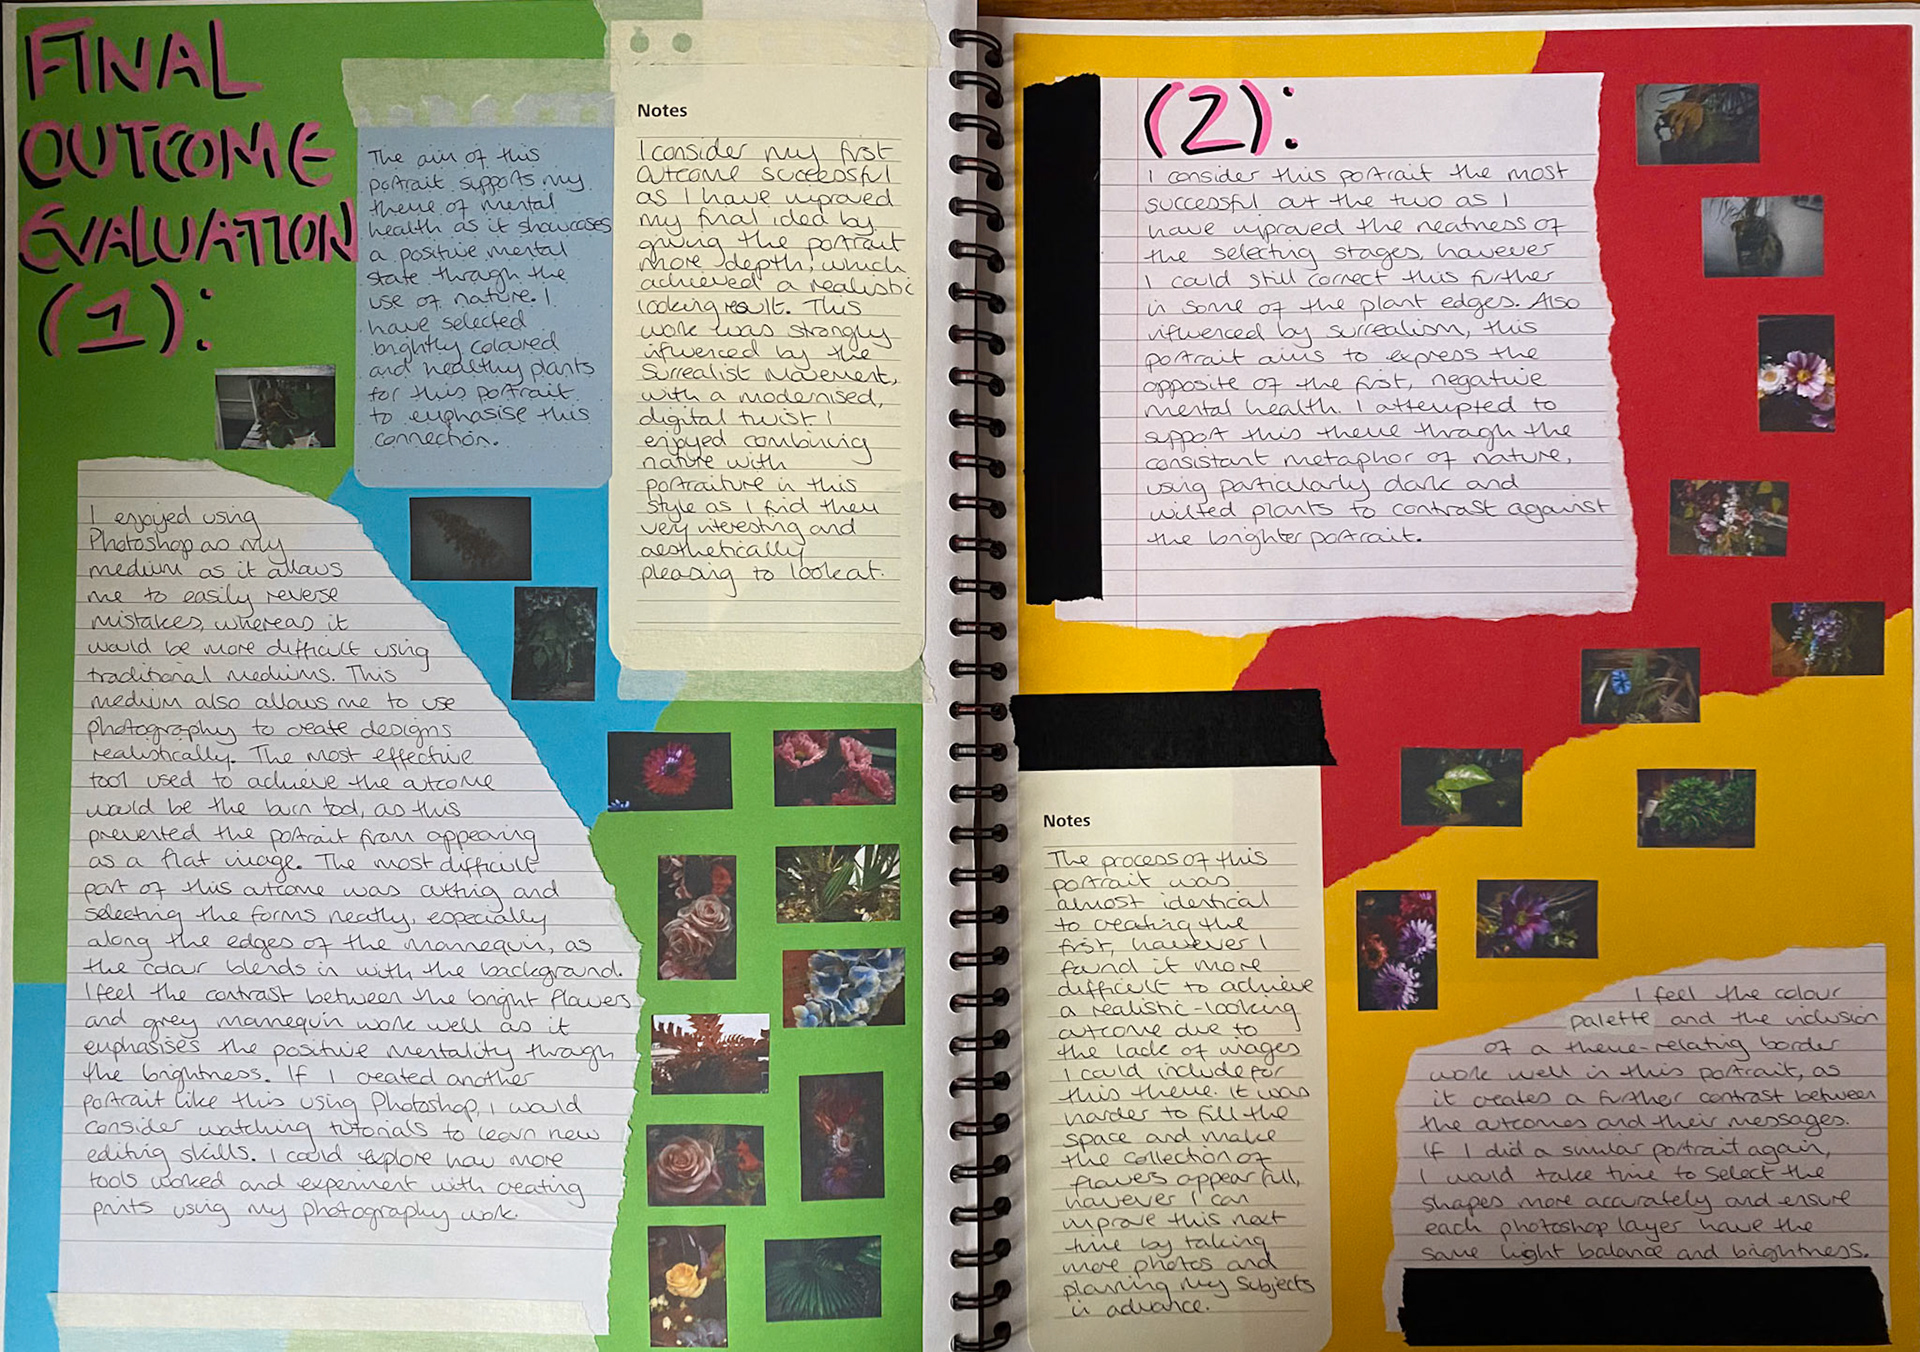 FINAL
OUTCOME
EVALUATION
(1):
The aim of this
portrait supports my
theme of mental
health as it showcases
a positive mental
state through the
use of nature. I
have selected
brightly coloured
and healthy plants
for this portrait
to emphasise this
connection.
Notes
I consider my first
outcome successful
as I have improved
my final idea by
giving the portrait
more depth, which
achieved a realistic
looking result. This
work was strongly
influenced by the
Surrealist Movement,
with a modernised,
digital twist. I
enjoyed combining
nature with
portraiture in this
style as I find them
very interesting and
aesthetically
pleasing to look at.
I enjoyed using
Photoshop as my
medium as it allows
me to easily reverse
mistakes, whereas it
would be more difficult using
traditional mediums. This
medium also allows me to use
photography to create designs
realistically. The most effective
tool used to achieve the outcome
would be the burn tool, as this
prevented the portrait from appearing
as a flat image. The most difficult
part of this outcome was cutting and
selecting the forms neatly, especially
along the edges of the mannequin, as
the colour blends in with the background.
I feel the contrast between the bright flowers
and grey mannequin work well as it
emphasises the positive mentality through
the brightness. If I created another
portrait like this using Photoshop, I would
consider watching tutorials to learn new
editing skills. I could explore how more
tools worked and experiment with creating
prints using my photography work.
(2):
I consider this portrait the most
successful out the two as I
have improved the neatness of
the selecting stages, however
I could still correct this further
in some of the plant edges. Also
influenced by surrealism, this
portrait aims to express the
opposite of the first, negative
mental health. I attempted to
support this theme through the
consistant metaphor of nature,
using particularly dark and
wilted plants to contrast against
the brighter portrait.
Notes
The process of this
portrait was
almost identical
to creating the
first, however I
found it more
difficult to achieve
a realistic-looking
outcome due to
the lack of images
I could include for
this theme. It was
harder to fill the
space and make
the collection of
flowers appear full,
however I can
improve this next
time by taking
more photos and
planning my subjects
in advance.
I feel the colour
palette and the inclusion
of a theme-relating border
work well in this portrait, as
it creates a further contrast between
the outcomes and their messages.
If I did a similar portrait again,
I would take time to select the
shapes more accurately and ensure
each photoshop layer have the
same light balance and brightness.